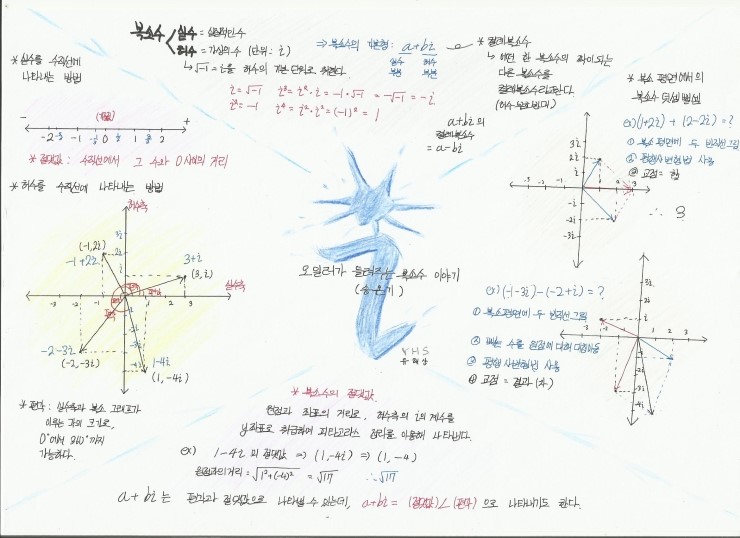 복소수
실수 = 실질적인 수
허수 = 가상의 수 (단위: i)
↳ √-1 = i을 허수의 기본 단위로 취한다.
i = √-1 i³ = i²·i = -1·√-1 = -√-1 = -i
i² = -1 i⁴ = i²·i² = (-1)² = 1
⇒ 복소수의 기본형: a+bi
실수 허수
부분 부분
* 켤레복소수
↳ 어떤 한 복소수와 짝이 되는
다른 복소수를
켤레복소수라고 한다.
(허수 부호 반대)
a+bi의
켤레복소수
= a-bi
* 실수를 수직선에
나타내는 방법
- +
-2 -1 0 1 2
* 절댓값: 수직선에서 그 수와 0 사이의 거리
* 허수를 수직선에 나타내는 방법
허수축
실수축
(-1,2i)
-1+2i
3+i
(3,i)
-2-3i
(-2,-3i)
1-4i
(1,-4i)
* 편각: 실수축과 복소 그래프가
이루는 각의 크기로,
0°에서 360°까지
가능하다.
* 복소 평면에서의
복소수 덧셈 뺄셈
ex) (1+2i) + (2-2i) = ?
① 복소평면에 두 반직선 그림
② 평행사변형법 사용
③ 교점 = 합
∴ 3
오일러가 들려주는 복소수 이야기
(송온기)
YHS
ex) (-1-3i)-(-2+i) = ?
① 복소평면에 두 반직선 그림
② 빼는 수를 원점에 대해 대칭이동
③ 평행사변형법 사용
④ 교점 = 결과 (차)
* 복소수의 절댓값
원점과 좌표의 거리로, 허수축의 i의 계수를
y좌표로 취급하여 피타고라스 정리를 이용해 나타낸다.
ex) 1-4i의 절댓값 ⇒ (1,-4i) ⇒ (1,-4)
원점과의 거리 = √1²+(-4)² = √17 ∴√17
a+bi는 편각과 절댓값으로 나타낼 수 있는데, a+bi = (절댓값)∠(편각)으로 나타내기도 한다.